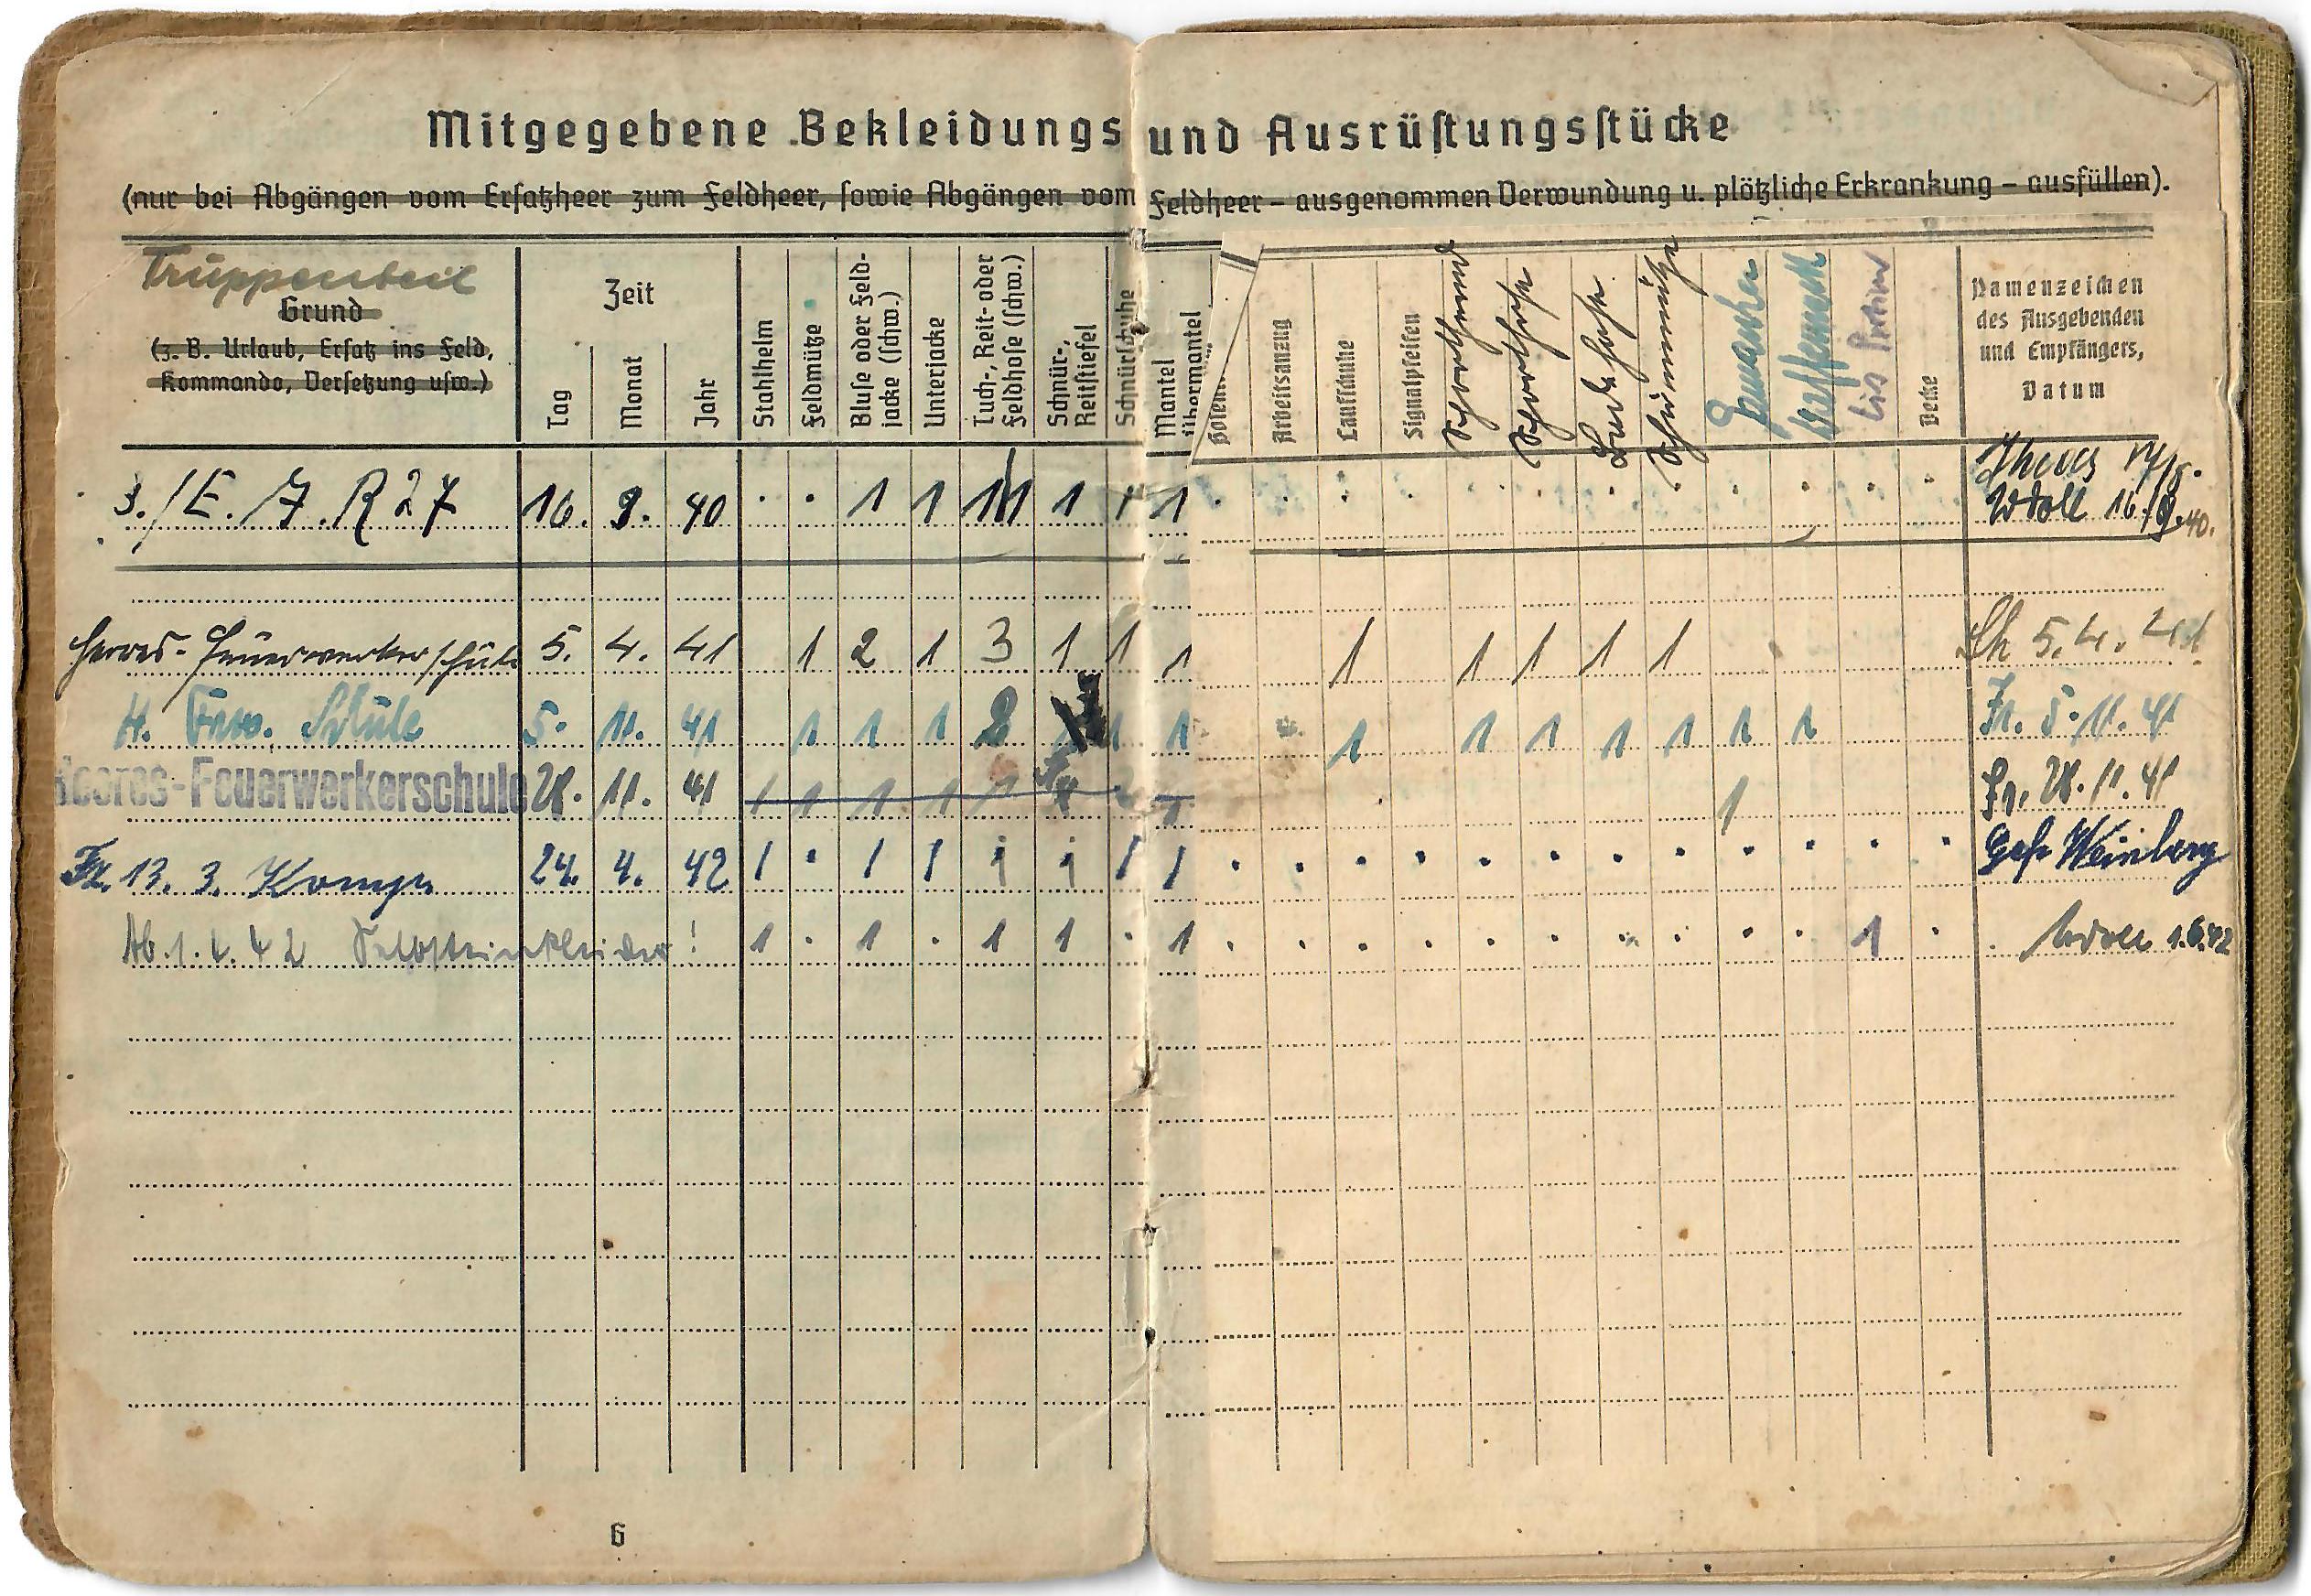 Mitgegebene Bekleidungs und Ausrüſtungsſtücke
(nur bei Abgängen vom Erſatzheer zum Feldheer, ſowie Abgängen vom Feldheer – ausgenommen Verwundung u. plötzliche Erkrankung – ausfüllen).
Truppenteil
Grund
(z. B. Urlaub, Erſatz ins Feld,
Kommando, Verſetzung uſw.)
Zeit
Tag
Monat
Jahr
Stahlhelm
Feldmütze
Bluſe oder Feld-
jacke (ſchw.)
Unterjacke
Tuch-, Reit- oder
Feldhoſe (ſchw.)
Schnür-,
Reitſtiefel
Schnürſchuhe
Mantel
Übermantel
Arbeitsanzug
Laufſchuhe
Signalpfeifen
Sporthemd
Sporthose
Badehose
Decke
Namenzeichen
des Ausgebenden
und Empfängers,
Datum
3./E. J. R 27 16. 9. 40 . . 1 1 1 1 1
Woll 16/9.40.
Heeres-Feuerwerkerschule 5. 4. 41 1 2 1 3 1 1 1 1 1 1 1 1 5.4.41
H. Fw. Schule 5. 11. 41 1 1 1 2 1 1 1 1 1 1 1 1 1 Fr. 5.11.41
Heeres-Feuerwerkerschule 28. 11. 41 1 1 1 1 1 1 1 Fr. 28.11.41
Fz. 13. 3. Komp. 24. 4. 42 1 . 1 1 1 1 1 1 . . . . . . . . . . . . Gefr Weinberg
Ab 1. 42 Selbsteinkleider! 1 . 1 . 1 1 . 1 . . . . . . . . . . 1 . 1.6.42
6